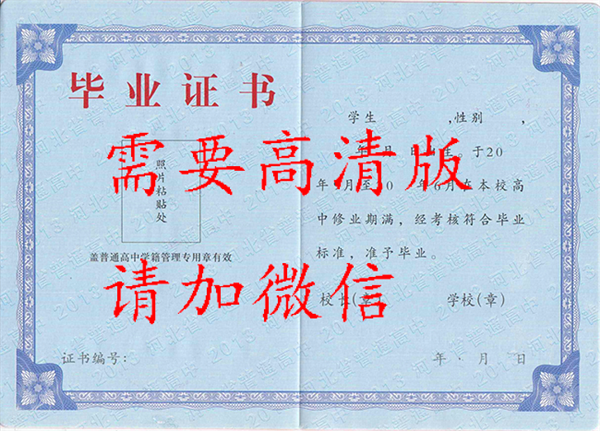 毕业证书
照片粘贴处
盖普通高中学籍管理专用章有效
证书编号:
学生 ,性别 ,
年 月 日 生。于20
年 月至 0 年6月在本校高
中修业期满，经考核符合毕业
标准，准予毕业。
校长(章) 学校(章)
年 · 月 日
需要高清版
请加微信
2013